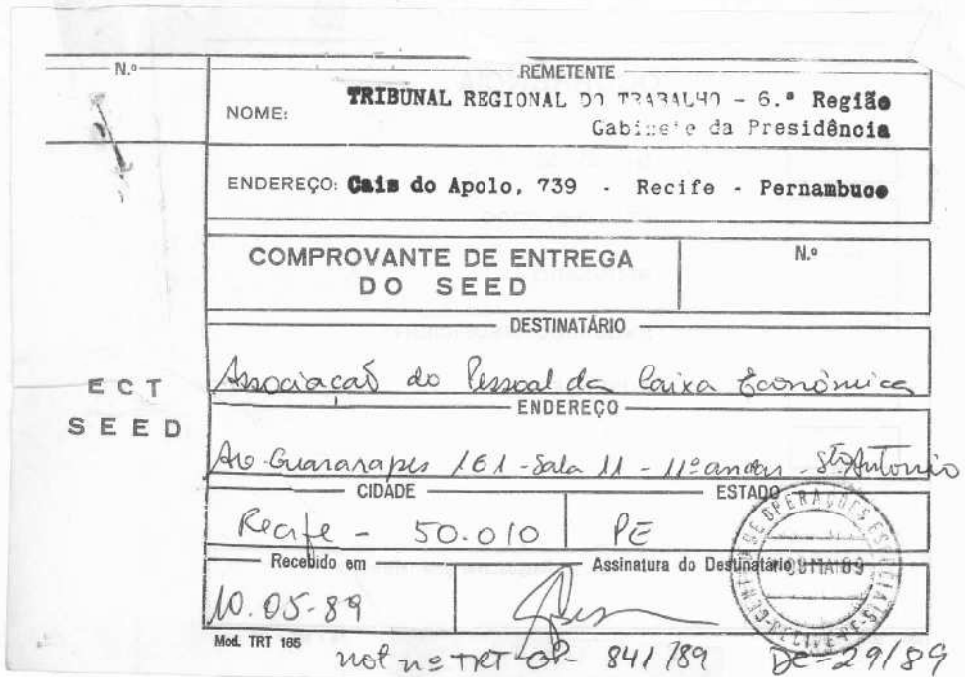 N.º
REMETENTE
NOME: TRIBUNAL REGIONAL DO TRABALHO - 6.ª Região
Gabinete da Presidência
ENDEREÇO: Cais do Apolo, 739 - Recife - Pernambuco
COMPROVANTE DE ENTREGA
DO SEED
N.º
DESTINATÁRIO
Associação do Pessoal da Caixa Econômica
ECT
SEED
ENDEREÇO
Av. Guararapes 161 - Sala 11 - 11º andar - Stº Antonio
CIDADE
ESTADO
Recife - 50.010
PE
Recebido em
Assinatura do Destinatário
10.05-89
CENTRO DE OPERAÇÕES ESPECIAIS
MAI 89
RECIFE-PE
Mod. TRT 165
not nº TRT-GP- 841/89
DC-29/89